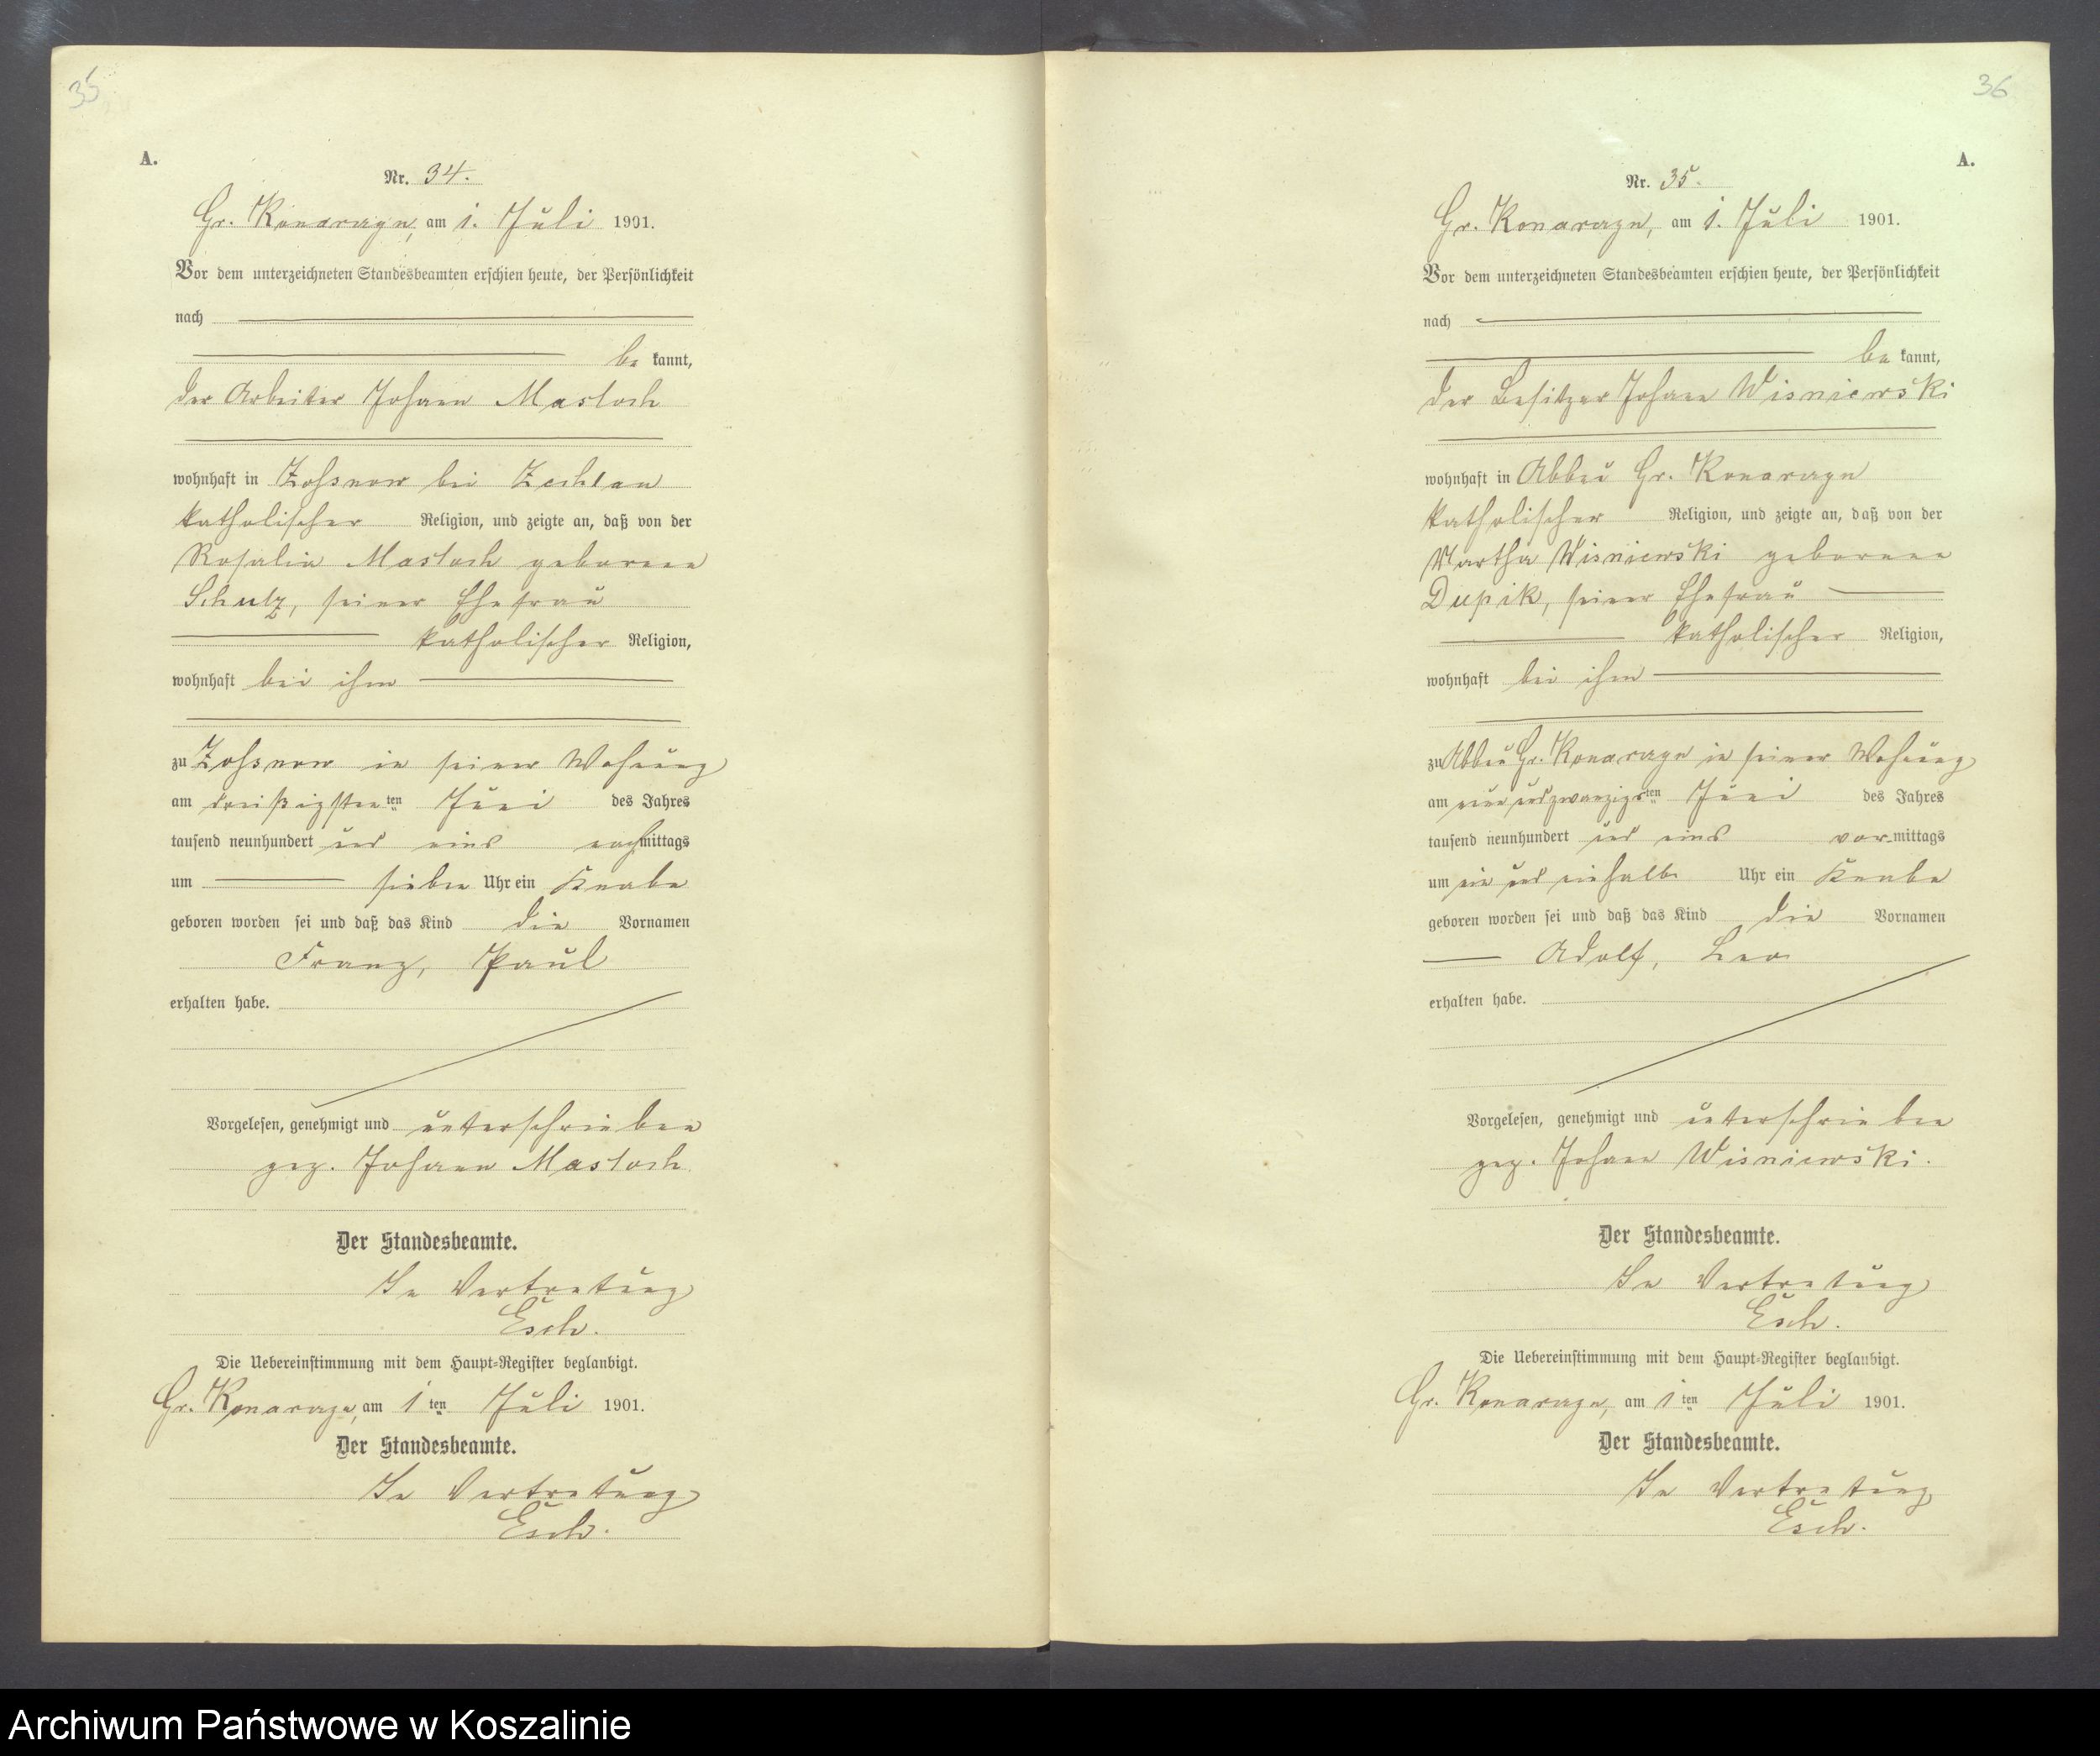 35
A.
Nr. 34.
Gr. Konarczyn, am 1. Juli 1901.
Vor dem unterzeichneten Standesbeamten erschien heute, der Persönlichkeit
nach
be kannt,
der Arbeiter Johann Masloch
wohnhaft in Zossnow bei Zechlau
katholischer Religion, und zeigte an, daß von der
Rosalia Masloch geborene
Schulz, seiner Ehefrau
katholischer Religion,
wohnhaft bei ihm
zu Zossnow in seiner Wohnung
am dreißigsten ten Juni des Jahres
tausend neunhundert und eins nachmittags
um sieben Uhr ein Knabe
geboren worden sei und daß das Kind die Vornamen
Franz, Paul
erhalten habe.
Vorgelesen, genehmigt und unterschrieben
gez. Johann Masloch
Der Standesbeamte.
In Vertretung
Esch.
Die Uebereinstimmung mit dem Haupt-Register beglaubigt.
Gr. Konarczyn, am 1 ten Juli 1901.
Der Standesbeamte.
In Vertretung
Esch.
36
A.
Nr. 35.
Gr. Konarczyn, am 1. Juli 1901.
Vor dem unterzeichneten Standesbeamten erschien heute, der Persönlichkeit
nach
be kannt,
der Besitzer Johann Wisniewski
wohnhaft in Abbau Gr. Konarczyn
katholischer Religion, und zeigte an, daß von der
Martha Wisniewski geborene
Dupik, seiner Ehefrau
katholischer Religion,
wohnhaft bei ihm
zu Abbau Gr. Konarczyn in seiner Wohnung
am neun und zwanzigsten Juni des Jahres
tausend neunhundert und eins vor mittags
um ein und einhalb Uhr ein Knabe
geboren worden sei und daß das Kind die Vornamen
Adolf, Leo
erhalten habe.
Vorgelesen, genehmigt und unterschrieben
gez. Johann Wisniewski.
Der Standesbeamte.
In Vertretung
Esch.
Die Uebereinstimmung mit dem Haupt-Register beglaubigt.
Gr. Konarczyn, am 1 ten Juli 1901.
Der Standesbeamte.
In Vertretung
Esch.
Archiwum Państwowe w Koszalinie